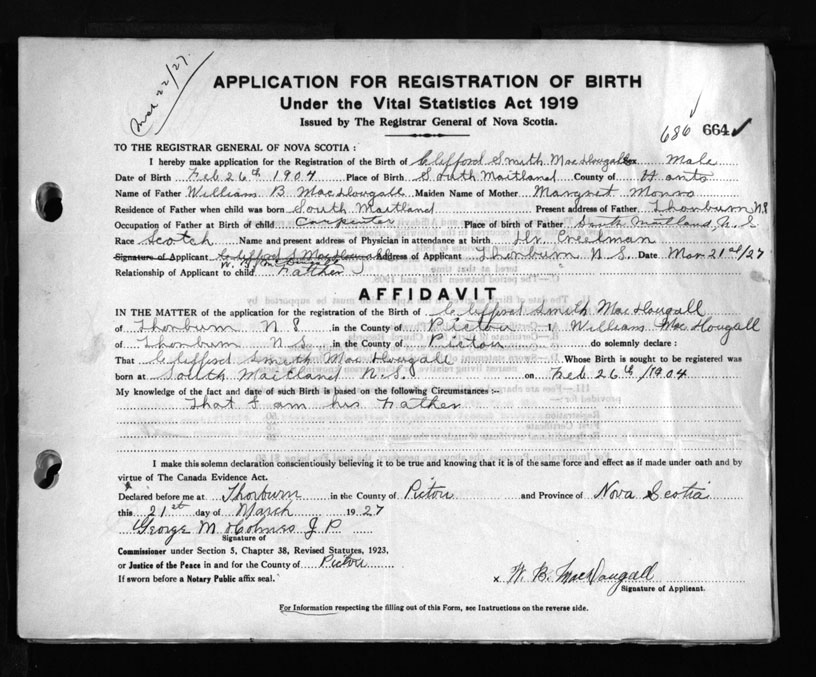 Mar 22/27.
APPLICATION FOR REGISTRATION OF BIRTH
Under the Vital Statistics Act 1919
Issued by The Registrar General of Nova Scotia.
686 664
TO THE REGISTRAR GENERAL OF NOVA SCOTIA :
I hereby make application for the Registration of the Birth of Clifford Smith MacDougall Sex Male
Date of Birth Feb 26th 1904 Place of Birth South Maitland County of Hants
Name of Father William B. MacDougall Maiden Name of Mother Margret Monro
Residence of Father when child was born South Maitland Present address of Father Thorburn N S
Occupation of Father at Birth of child Carpenter Place of birth of Father South Maitland N. S
Race Scotch Name and present address of Physician in attendance at birth Dr. Creelman
Signature of Applicant Clifford S MacDougall Address of Applicant Thorburn N. S. Date Mar 21st/27
W. B. MacDougall
Relationship of Applicant to child Father
AFFIDAVIT
IN THE MATTER of the application for the registration of the Birth of Clifford Smith MacDougall
of Thorburn N S in the County of Pictou I, William MacDougall
of Thorburn N S. in the County of Pictou do solemnly declare :
That Clifford Smith MacDougall Whose Birth is sought to be registered was
born at South Maitland N. S. on Feb 26th/1904
My knowledge of the fact and date of such Birth is based on the following Circumstances :-
That I am his Father
I make this solemn declaration conscientiously believing it to be true and knowing that it is of the same force and effect as if made under oath and by
virtue of The Canada Evidence Act.
Declared before me at Thorburn in the County of Pictou and Province of Nova Scotia
this 21st day of March 1927
George M Holmes J. P.
Signature of
Commissioner under Section 5, Chapter 38, Revised Statutes, 1923,
or Justice of the Peace in and for the County of Pictou
If sworn before a Notary Public affix seal.
x W. B. MacDougall
Signature of Applicant.
For Information respecting the filling out of this Form, see Instructions on the reverse side.